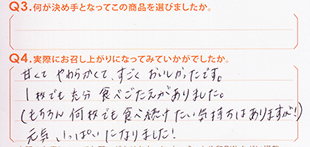 Q3.何が決め手となってこの商品を選びましたか。
Q4.実際にお召し上がりになってみていかがでしたか。
甘くて やわらかくて、すごく おいしかったです。
1枚でも充分 食べごたえがありました。
(もちろん 何枚でも食べ続けたい気持ちはありますが!)
元気いっぱいになりました!